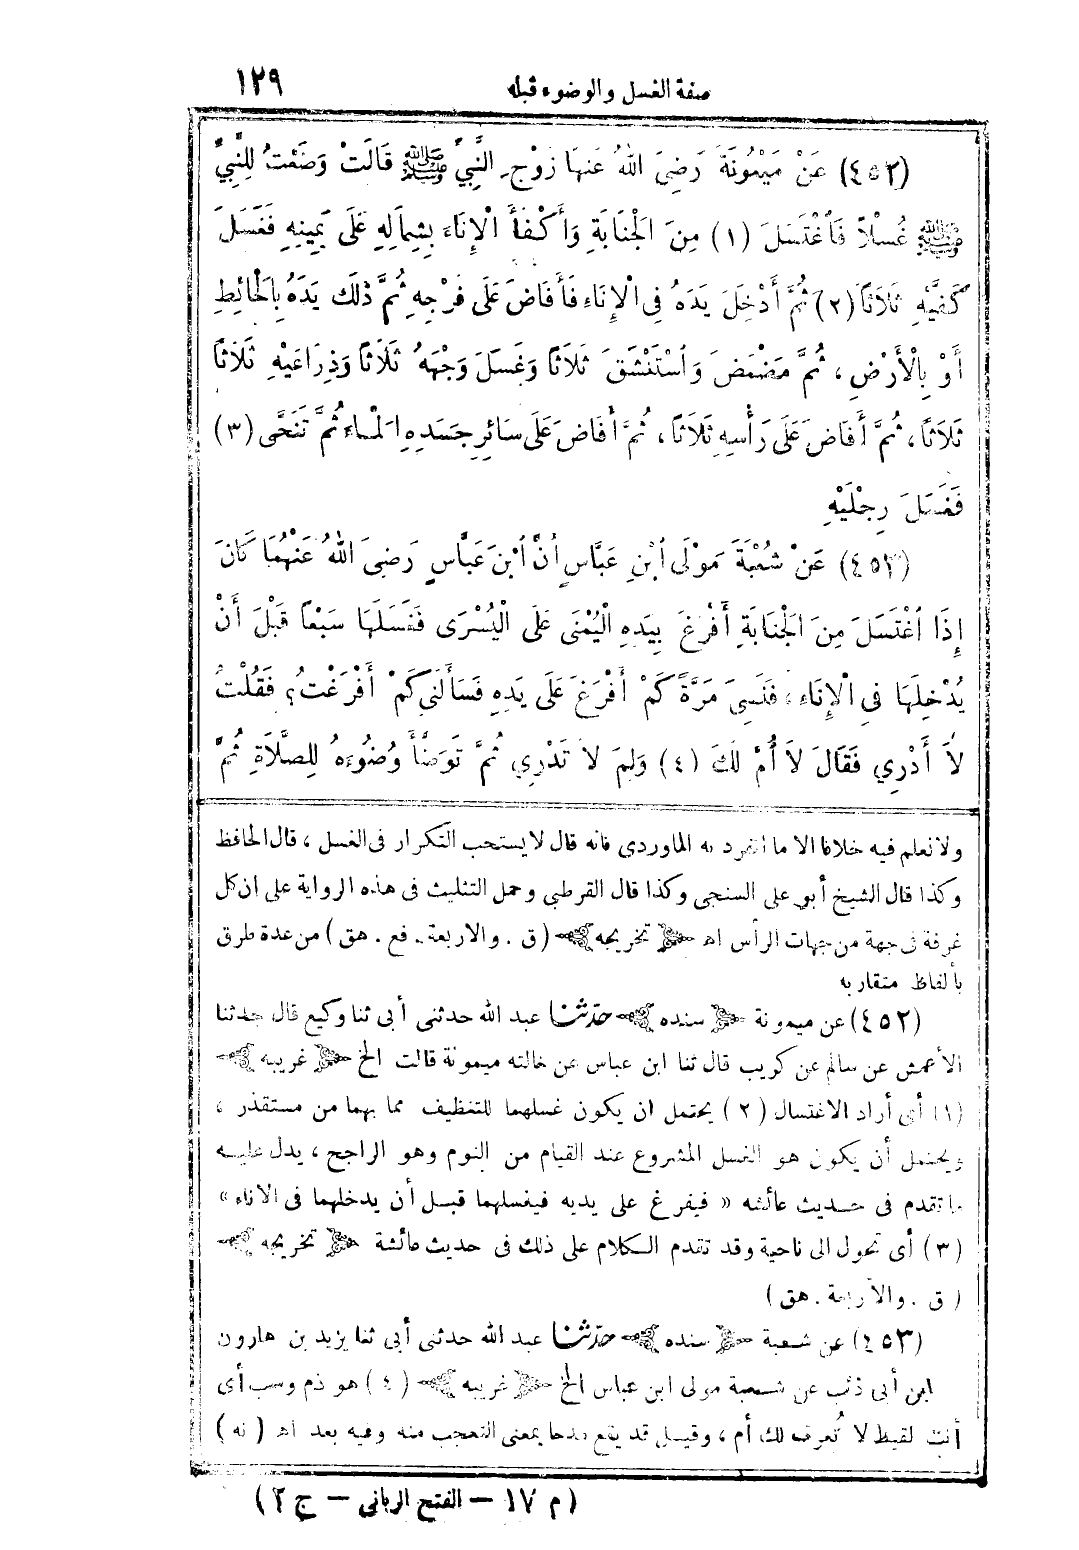 صفة الغسل والوضوء قبله
١٢٩
(٤٥٢) عَنْ مَيْمُونَةَ رَضِيَ اللهُ عَنهَا زَوْجِ النَّبِيِّ ﷺ قَالَتْ وَضَعْتُ لِلنَّبِيِّ
ﷺ غُسْلاً فَاُغْتَسَلَ (١) مِنَ الْجَنَابَةِ وَأَكْفَأَ الْإِنَاءَ بِشِمَالِهِ عَلَى يَمِينِهِ فَغَسَلَ
كَفَّيْهِ ثَلَاثاً (٢) ثُمَّ أَدْخَلَ يَدَهُ فِي الْإِنَاءِ فَأَفَاضَ عَلَى فَرْجِهِ ثُمَّ دَلَكَ يَدَهُ بِالْحَائِطِ
أَوْ بِالْأَرْضِ ، ثُمَّ مَضْمَضَ وَاُسْتَنْشَقَ ثَلَاثاً وَغَسَلَ وَجْهَهُ ثَلَاثاً وَذِرَاعَيْهِ ثَلَاثاً
ثَلَاثاً ، ثُمَّ أَفَاضَ عَلَى رَأْسِهِ ثَلَاثاً ، ثُمَّ أَفَاضَ عَلَى سَائِرِ جَسَدِهِ الْمَاءَ ثُمَّ تَنَحَّى (٣)
فَغَسَلَ رِجْلَيْهِ
(٤٥٣) عَنْ شُعْبَةَ مَوْلَى اُبْنِ عَبَّاسٍ أَنَّ اُبْنَ عَبَّاسٍ رَضِيَ اللهُ عَنْهُمَا كَانَ
إِذَا اُغْتَسَلَ مِنَ الْجَنَابَةِ أَفْرَغَ بِيَدِهِ الْيُمْنَى عَلَى الْيُسْرَى فَغَسَلَهَا سَبْعاً قَبْلَ أَنْ
يُدْخِلَهَا فِي الْإِنَاءِ ، فَنَسِيَ مَرَّةً كَمْ أَفْرَغَ عَلَى يَدِهِ فَسَأَلَنِي كَمْ أَفْرَغْتُ ؟ فَقُلْتُ
لاَ أَدْرِي فَقَالَ لاَ أُمَّ لَكَ (٤) وَلِمَ لاَ تَدْرِي ثُمَّ تَوَضَّأَ وُضُوءَهُ لِلصَّلَاةِ ثُمَّ
ولا نعلم فيه خلافا الا ما انفرد به الماوردى فانه قال لا يستحب التكرار فى الغسل ، قال الحافظ
وكذا قال الشيخ أبو على السنجى وكذا قال القرطبى وحمل التثليث فى هذه الرواية على ان كل
غرفة فى جهة من جهات الرأس اه ﴿ تخريجه ﴾ (ق . والاربعة . فع . هق) من عدة طرق
بألفاظ متقاربه
(٤٥٢) عن ميمونة ﴿ سنده ﴾ حدّثنا عبد الله حدثنى أبى ثنا وكيع قال حدثنا
الأعمش عن سالم عن كريب قال ثنا ابن عباس عن خالته ميمونة قالت الخ ﴿ غريبه ﴾
(١) أى أراد الاغتسال (٢) يحتمل ان يكون غسلهما للتنظيف مما بهما من مستقذر ،
ويحتمل أن يكون هو الغسل المشروع عند القيام من النوم وهو الراجح ، يدل عليه
ما تقدم فى حديث عائشه « فيفرغ على يديه فيغسلهما قبل أن يدخلهما فى الاناء »
(٣) أى تحول الى ناحية وقد تقدم الكلام على ذلك فى حديث عائشة ﴿ تخريجه ﴾
(ق . والأربعة . هق)
(٤٥٣) عن شعبة ﴿ سنده ﴾ حدّثنا عبد الله حدثنى أبى ثنا يزيد بن هارون
ابن أبى ذئب عن شعبة مولى ابن عباس الخ ﴿ غريبه ﴾ (٤) هو ذم وسب أى
أنت لقيط لا تُعرف لك أم ، وقيل قد يقع مدحا بمعنى التعجب منه وفيه بعد اه (نه)
(م ١٧ – الفتح الربانى – ج ٢)